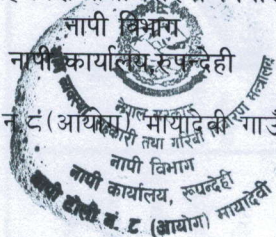 नापी विभाग
नापी कार्यालय, रुपन्देही
नं ८ (आयोग) मायादेवी गाउँ
नेपाल सरकार
सहकारी तथा गरिबी
नापी विभाग
नापी कार्यालय, रूपन्देही
नापी टोली नं. ८ (आयोग) मायादेवी